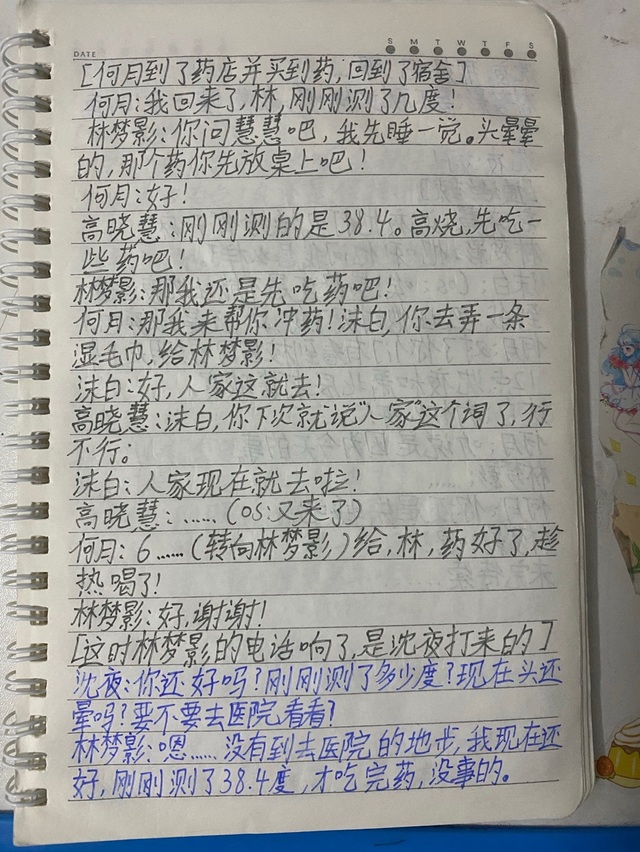 DATE
S M T W T F S
[何月到了药店并买到药,回到了宿舍]
何月:我回来了,林,刚刚测了几度!
林梦影:你问慧慧吧,我先睡一觉。头晕晕
的,那个药你先放桌上吧!
何月:好!
高晓慧:刚刚测的是38.4。高烧,先吃一
些药吧!
林梦影:那我还是先吃药吧!
何月:那我来帮你冲药!沫白,你去弄一条
湿毛巾,给林梦影!
沫白:好,人家这就去!
高晓慧:沫白,你下次就说"人家"这个词了,行
不行。
沫白:人家现在就去啦!
高晓慧:……(os:又来了)
何月:6……(转向林梦影)给,林,药好了,趁
热喝了!
林梦影:好,谢谢!
[这时林梦影的电话响了,是沈夜打来的]
沈夜:你还好吗?刚刚测了多少度?现在头还
晕吗?要不要去医院看看?
林梦影:嗯……没有到去医院的地步,我现在还
好,刚刚测了38.4度,才吃完药,没事的。